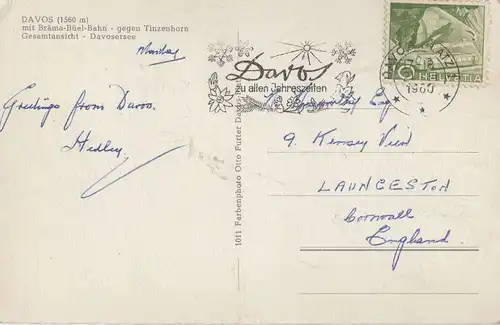 DAVOS (1560 m)
mit Bräma-Büel-Bahn - gegen Tinzenhorn
Gesamtansicht - Davosersee
Monday
Greetings from Davos.
Hedley
1011 Farbenphoto Otto Furter Da
Davos
zu allen Jahreszeiten
DAVOS PLATZ
1960
10 HELVETIA
Esq
9. Kensey View
LAUNCESTON
Cornwall
England.